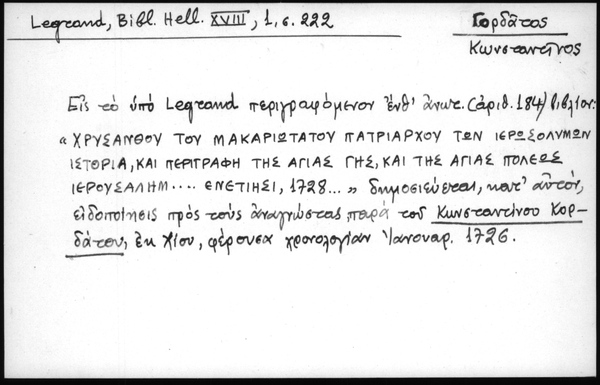 Legrand, Bibl. Hell. XVIII, 1, σ. 222
Γορδᾶτος
Κωνσταντῖνος
Εἰς τὸ ὑπὸ Legrand περιγραφόμενον ἔνθ' ἀνωτ. (ἀριθ. 184) βιβλίον:
«ΧΡΥΣΑΝΘΟΥ ΤΟΥ ΜΑΚΑΡΙΩΤΑΤΟΥ ΠΑΤΡΙΑΡΧΟΥ ΤΩΝ ΙΕΡΟΣΟΛΥΜΩΝ
ΙΣΤΟΡΙΑ, ΚΑΙ ΠΕΡΙΓΡΑΦΗ ΤΗΣ ΑΓΙΑΣ ΓΗΣ, ΚΑΙ ΤΗΣ ΑΓΙΑΣ ΠΟΛΕΩΣ
ΙΕΡΟΥΣΑΛΗΜ.... ΕΝΕΤΙΗΣΙ, 1728...» δημοσιεύεται, κατ' αὐτόν,
εἰδοποίησις πρὸς τοὺς ἀναγνώστας παρὰ τοῦ Κωνσταντίνου Κορ-
δάτου, ἐκ Χίου, φέρουσα χρονολογίαν Ἰανουαρ. 1726.